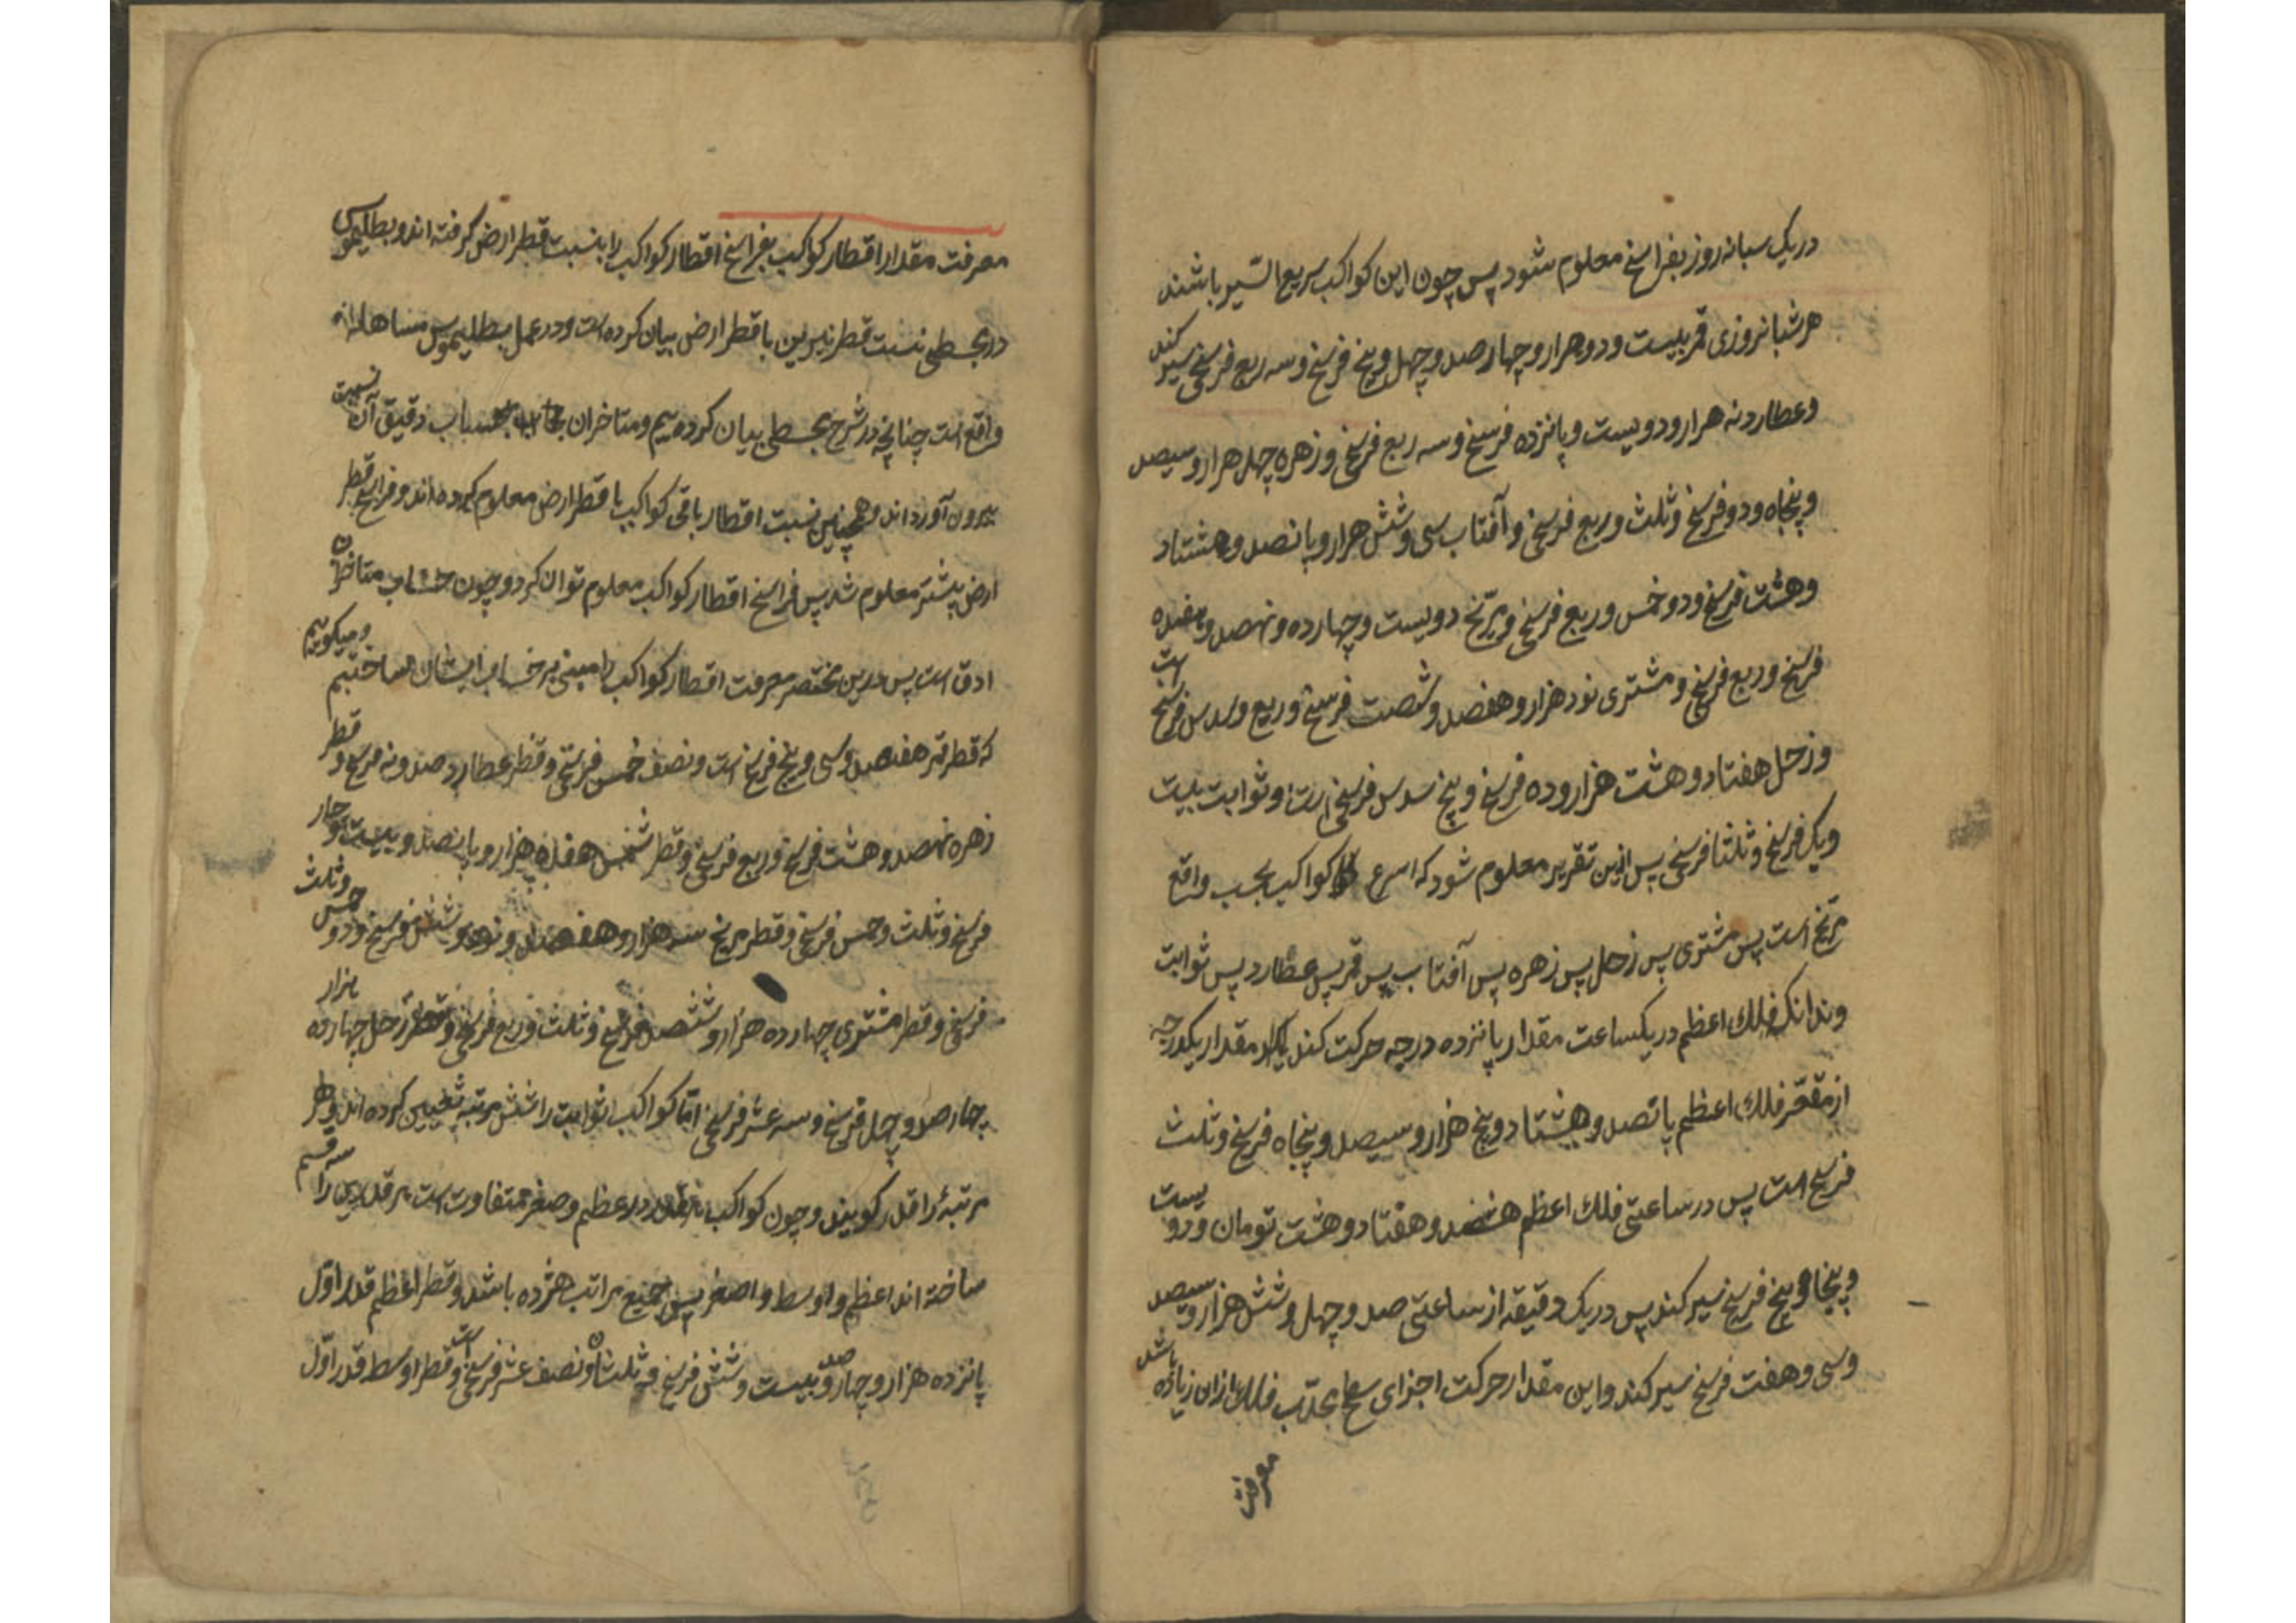 در یک شبانه روز بفراسخ معلوم شود پس چون این کواکب سریع السیر باشند
هر شبانروزی قمر بیست و دو هزار و چهار صد و چهل و پنج فرسخ و سه ربع فرسخی سیر کند
و عطارد نه هزار و دویست و پانزده فرسخ و سه ربع فرسخی و زهره چهل هزار و سیصد
و پنجاه و دو فرسخ و ثلث و ربع فرسخی و آفتاب سی و شش هزار و پانصد و هشتاد
و هشت فرسخ و دو خمس و ربع فرسخی و مریخ دویست و چهارده و نهصد و هفده
فرسخ و ربع فرسخی و مشتری نود هزار و هفصد و شصت فرسخ و ربع و سدس فرسخ است
و زحل هفتاد و هشت هزار و ده فرسخ و پنج سدس فرسخی است و ثوابت بیست
و یک فرسخ و ثلثا فرسخی پس ازین تقریر معلوم شود که اسرع کواکب بحسب واقع
مریخ است پس مشتری پس زحل پس زهره پس آفتاب پس قمر پس عطارد پس ثوابت
و بدانک فلک اعظم در یکساعت مقدار پانزده درجه حرکت کند مقدار یکدرجه
از مقعر فلک اعظم پانصد و هشتاد و پنج هزار و سیصد و پنجاه فرسخ و ثلث
فرسخ است پس در ساعتی فلک اعظم هفصد و هفتاد و هشت تومان و دویست
و پنجاه و پنج فرسخ سیر کند پس در یک دقیقه از ساعتی صد و چهل و شش هزار و سیصد
و سی و هفت فرسخ سیر کند و این مقدار حرکت اجزای سطح محدب فلک ازان زیاده باشد
معرفت
معرفت مقدار اقطار کواکب بفراسخ اقطار کواکب را بنسبت قطر ارض گرفته اند و بطلیموس
در مجسطی نسبت قطر نیرین با قطر ارض بیان کرده است و در عمل بطلیموس مساهله
واقع است چنانچه در شرح مجسطی بیان کرده‌یم و متاخران بحساب دقیق آن نسبت
بیرون آورده اند و همچنین نسبت اقطار باقی کواکب با قطر ارض معلوم کرده اند و فراسخ قطر
ارض پیشتر معلوم شد پس فراسخ اقطار کواکب معلوم توان کرد و چون حساب متاخران
ادق است پس درین مختصر معرفت اقطار کواکب را مبنی بر حساب ایشان ساختیم و میگوئیم
که قطر قمر هفصد و سی و پنج فرسخ است و نصف خمس فرسخی و قطر عطارد صد و نه فرسخ و قطر
زهره نهصد و هشت فرسخ و ربع فرسخی و قطر شمس هفده هزار و پانصد و بیست و چار
فرسخ و ثلث و خمس فرسخی و قطر مریخ سه هزار و هفصد و نود و شش فرسخ و دو خمس و ثلث
فرسخی و قطر مشتری چهارده هزار و ششصد فرسخ و ثلث و ربع فرسخی و قطر زحل چهارده هزار
چهار صد و چهل فرسخ و سه عشر فرسخی اما کواکب ثوابت را شش مرتبه تعیین کرده اند و هر
مرتبهٔ را قدر گویند و چون کواکب هر قدر در عظم و صغر متفاوت است هر قدری را سه قسم
ساخته اند اعظم و اوسط و اصغر پس جمیع مراتب هژده باشد و قطر اعظم قدر اول
پانزده هزار و چهار صد و بیست و شش فرسخ و ثلثان و نصف عشر فرسخی است و قطر اوسط قدر اول